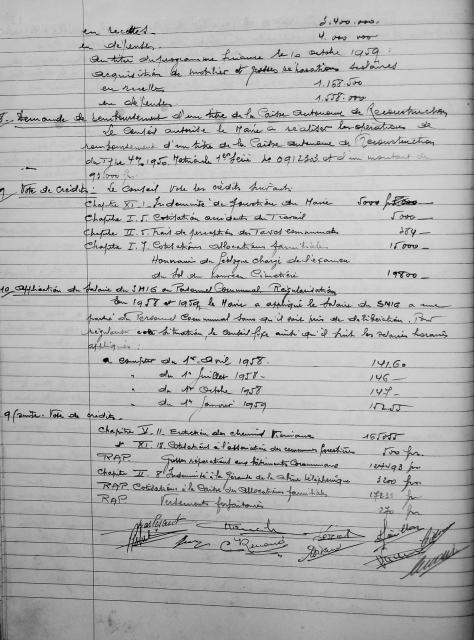 en recettes. 3.400.000.
en dépenses. 4.000.000
au titre du programme financé le 10 octobre 1959 :
acquisition de mobilier et grosses réparations scolaires
en recettes 1.168.500
en dépenses 1.558.000
8. Demande de remboursement d'un titre de la Caisse autonome de Reconstruction
Le Conseil autorise le Maire à réaliser les opérations de
remboursement d'un titre de la Caisse autonome de Reconstruction
du Type 4% 1950 et d'un montant de
9 Vote de crédits : Le Conseil vote les crédits suivants
Chapitre XI.1. Indemnité de fonction du Maire 5000
Chapitre I.5. Cotisation accidents du Travail 5000
Chapitre II.5. Frais de perception des Taxes communales 284
Chapitre I.7. Cotisations allocations familiales 15000
Honoraires du Géologue chargé de l'examen
du Sol du nouveau Cimetière 19800
10. Application du Salaire du SMIG au Personnel Communal Régularisation
En 1958 et 1959, le Maire a appliqué le Salaire du SMIG à une
partie du Personnel Communal sans qu'il soit pris de délibération. Pour
régulariser cette situation, le conseil fixe ainsi qu'il suit les salaires horaires
appliqués :
à compter du 1er Avril 1958. 141.60
" du 1er Juillet 1958 146
" du 1er Octobre 1958 147
" du 1er Janvier 1959 152.55
9/suite. Vote de crédits.
Chapitre V.11. Entretien des chemins Ruraux
XI.18. Cotisations à l'association des communes forestières 500 frs.
RAP Grosses réparations aux bâtiments Communaux 124493 frs
Chapitre II.8. Indemnité à la Gérante de la Cabine téléphonique 3200 frs
RAP Cotisations à la Caisse des allocations familiales
RAP Versements forfaitaires 270 frs
C. Renard